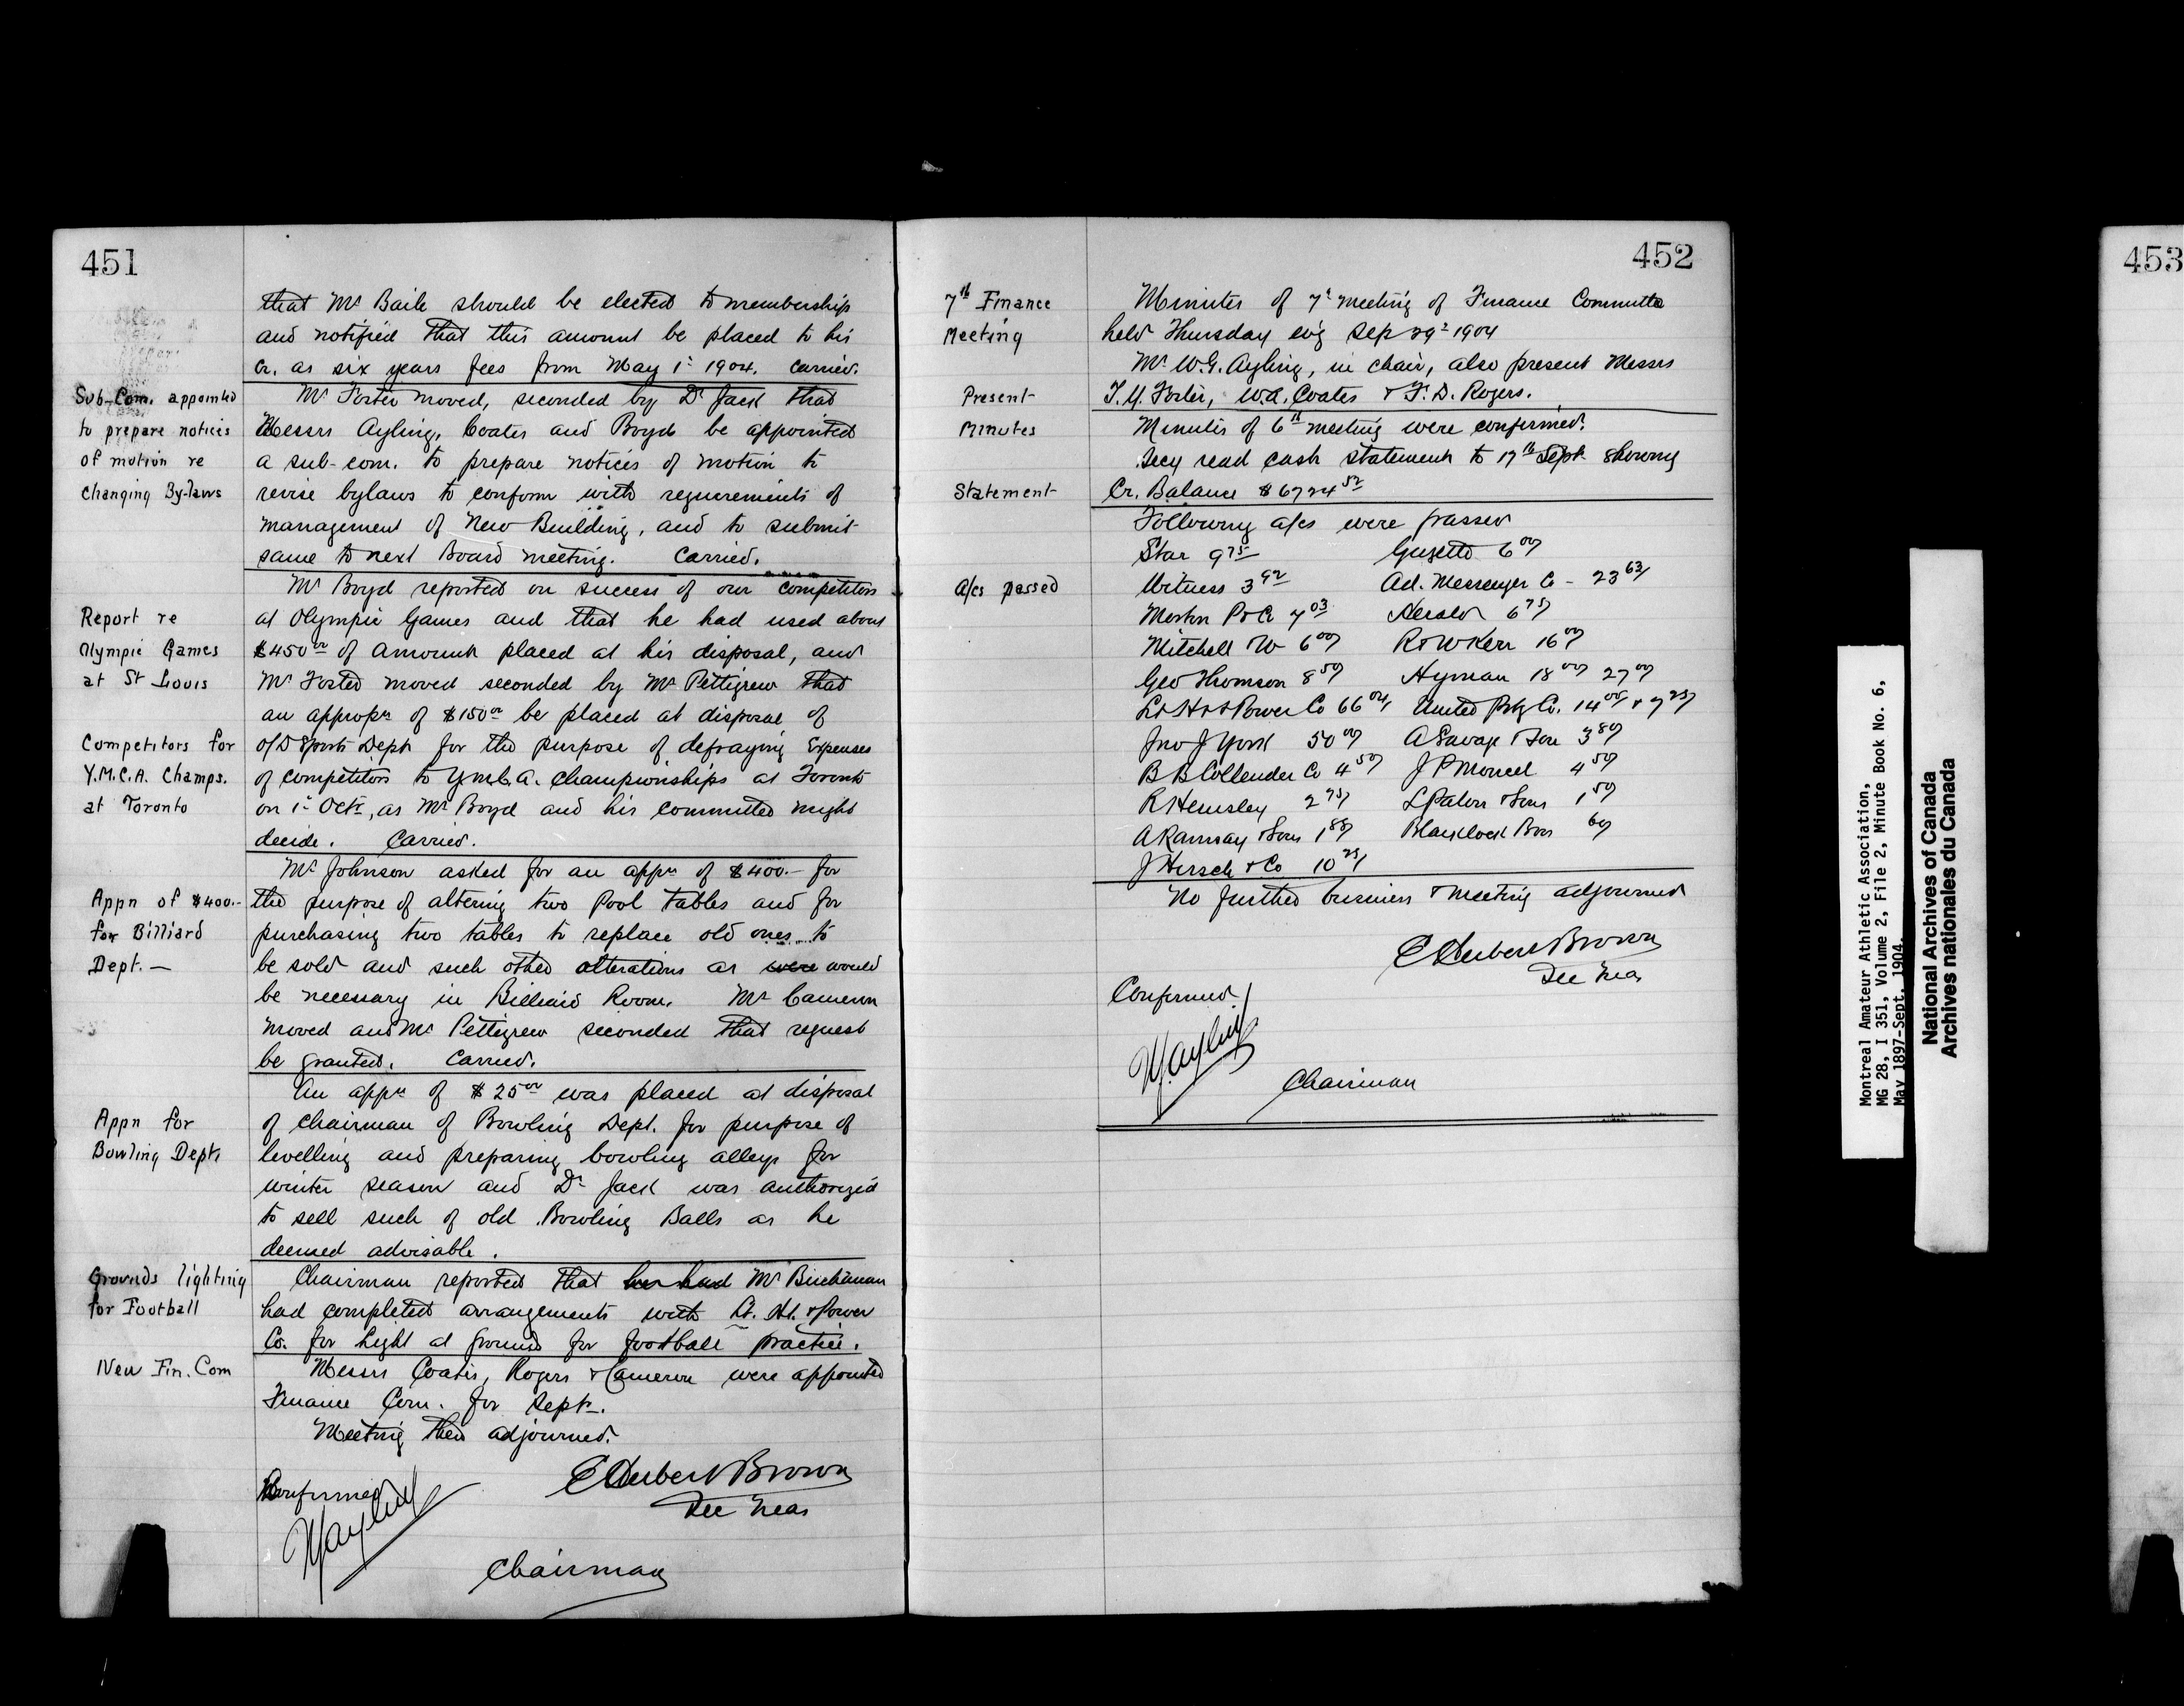 451
that Mr Baile should be elected to membership
and notified that this amount be placed to his
Cr. as six years fees from May 1st 1904. Carried.
Sub-Com. appointed
to prepare notices
of motion re
changing By-laws
Mr Foster moved, seconded by Dr Jack that
Messrs Ayling, Coates and Boyd be appointed
a sub-com. to prepare notices of motion to
revise bylaws to conform with requirements of
management of New Building, and to submit
same to next Board meeting. Carried.
Report re
Olympic Games
at St Louis
Competitors for
Y.M.C.A. Champs.
at Toronto
Mr Boyd reported on success of our competitors
at Olympic Games and that he had used about
$450.00 of amount placed at his disposal, and
Mr Foster moved seconded by Mr Pettigrew that
an appropn of $150.00 be placed at disposal of
O/D Sports Dept for the purpose of defraying Expenses
of competitors to Y.M.C.A. Championships at Toronto
on 1st Oct., as Mr Boyd and his committee might
decide. Carried.
Appn of $400.-
for Billiard
Dept. —
Mr Johnson asked for an appn of $400.- for
the purpose of altering two Pool tables and for
purchasing two tables to replace old ones to
be sold and such other alterations as were would
be necessary in Billiard Room. Mr Cameron
moved and Mr Pettigrew seconded that request
be granted. Carried.
Appn for
Bowling Dept.
An appn of $25.00 was placed at disposal
of Chairman of Bowling Dept. for purpose of
levelling and preparing bowling alleys for
winter season and Dr Jack was authorized
to sell such of old Bowling Balls as he
deemed advisable.
Grounds lighting
for Football
Chairman reported that he had Mr Buchanan
had completed arrangements with Lt. Ht. & Power
Co. for light at grounds for football practice.
New Fin. Com
Messrs Coates, Rogers & Cameron were appointed
Finance Com. for Sept.
Meeting then adjourned.
Confirmed
E Herbert Brown
Sec Treas
W G Ayling
Chairman
452
7th Finance
Meeting
Minutes of 7th meeting of Finance Committee
held Thursday ev'g Sep 29th 1904
Mr W.G. Ayling, in chair, also present Messrs
Present
T.Y. Foster, W.A. Coates & F.D. Rogers.
Minutes
Minutes of 6th meeting were confirmed.
Secy read cash statement to 17th Sept. showing
Statement
Cr. Balance $6724.52
Following a/cs were passed
A/cs passed
Star 9.75 Gazette 6.00
Witness 3.92 Ad. Messenger Co - 23.63
Morton P & Co 7.03 Herald 6.75
Mitchell W 6.00 R & W Kerr 16.00
Geo Thomson 8.50 Hyman 18.00 27.00
Lt H & Power Co 66.04 United Ptg Co. 14.00 & 7.25
Jno J York 50.00 A Savage & Son 3.80
B B Collender Co 4.50 J P Moncel 4.50
R Hemsley 2.75 L Paton & Sons 1.50
A Ramsay & Sons 1.88 Blacklock Bros 60
J Hirsch & Co 10.25
No further business & meeting adjourned
E Herbert Brown
Sec Treas
Confirmed
W G Ayling
Chairman
453
Montreal Amateur Athletic Association,
MG 28, I 351, Volume 2, File 2, Minute Book No. 6,
May 1897-Sept. 1904.
National Archives of Canada
Archives nationales du Canada